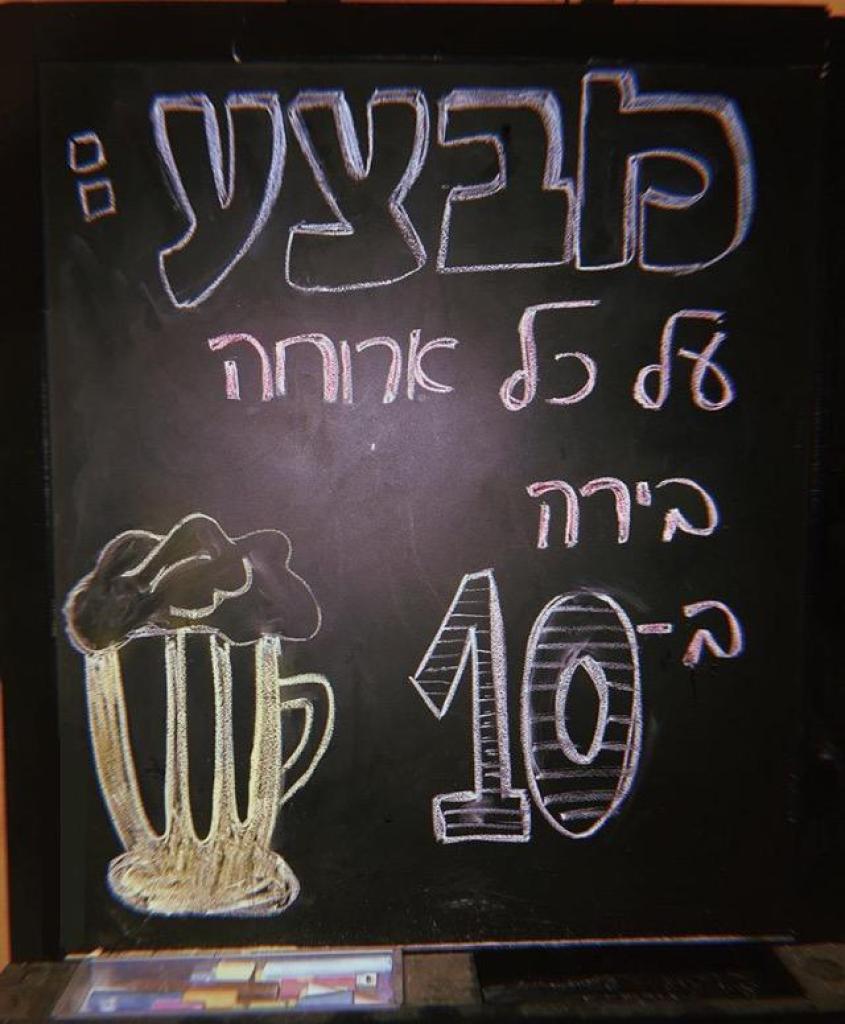 מבצע:
על כל ארוחה
בירה
ב-10